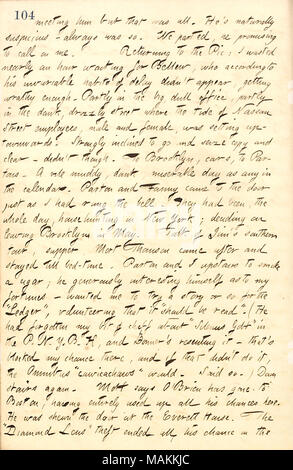 104
meeting him but that was all. He's naturally
suspicious — always was so. We parted, he promising
to call on me. Returning to the Pic; I waited
nearly an hour waiting for Bellew, who according to
his invariable habits of delay didn't appear, getting
wrathy enough. Partly in the big dull office, partly
in the dank, drizzly street where the tide of Nassau
street employees, male and female, was setting up-
townwards. Strongly inclined to go and seize copy and
clear — didn't though. To Brooklyn, cars, to Par-
tons. A vile muddy, dank, miserable day as any in
the calendar. Parton and Fanny came to the door
just as I had rung the bell. They had been, the
whole day, house hunting in New York; on
leaving Brooklyn in May. Talk of Jim's southern
tour, supper. Mort Thomson came after and
stayed till bed-time. Parton and I upstairs to smoke
a cigar; he generously interesting himself as to my
fortunes — wanted me to try a story or so for the
"Ledger", volunteering that it should be read. (He
had forgotten my bit of chaff about in
the P. N. Y. P. H, and Bonner's resenting it — that's
blocked my chance there, and if that didn't do it,
the would. I said so.) Down
stairs again. Mort says O'Brien has gone to
Boston, having entirely used up all his chances here.
He was shown the door at the Everett House. The
"Diamond Lens" theft ended all his chance in the
alamy
Image ID: MAKKJC
www.alamy.com